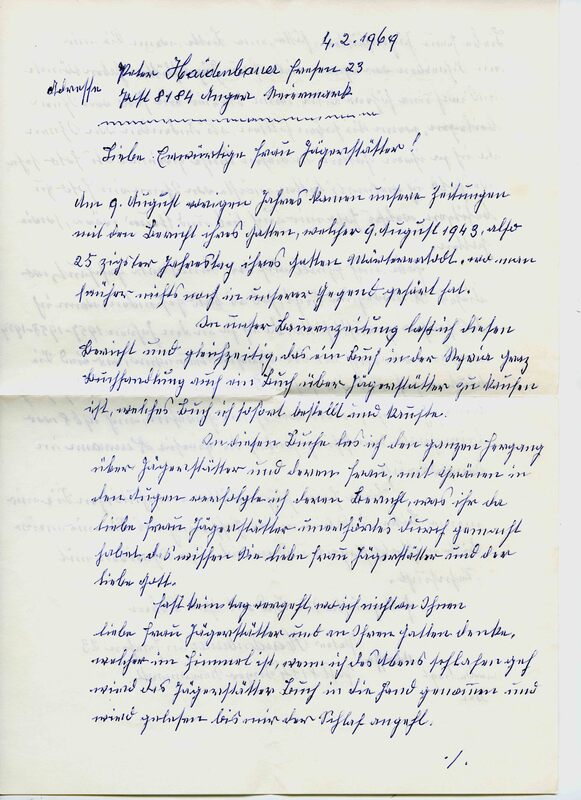 4.2.1969
Peter Haidenbauer Fresen 23
Adresse Post 8184 Anger Steiermark
Liebe Erwürtige Frau Jägerstätter!
Am 9. August vorigen Jahres kamen unsere Zeitungen
mit den Bericht ihres Gatten, welcher 9. August 1943, also
25 zigster Jahrestag ihres Gatten Märterertodt, wo man
früher nichts noch in unserer Gegend gehört hat.
In unser Bauernzeitung laß ich diesen
Bericht und gleichzeitig, das ein Buch in der Styria Graz
Buchhandlung auch ein Buch über Jägerstätter zu kaufen
ist, welches Buch ich sofort bestellt und kaufte.
In diesen Buche las ich den ganzen Hergang
über Jägerstätter und deren Frau, mit Thränen in
den Augen verfolgte ich deren Bericht, was ihr da
liebe Frau Jägerstätter unerhörtes durch gemacht
habet, das wissen Sie liebe Frau Jägerstätter und der
liebe Gott.
Fast kein tag vergeht, wo ich nicht an Ihnen
liebe Frau Jägerstätter und an Ihren Gatten denke,
welcher im Himmel ist, wenn ich des Abens schlafen geh
wird das Jägerstätter Buch in die Hand genommen und
wird gelesen bis mir der Schlaf angeht.
./.